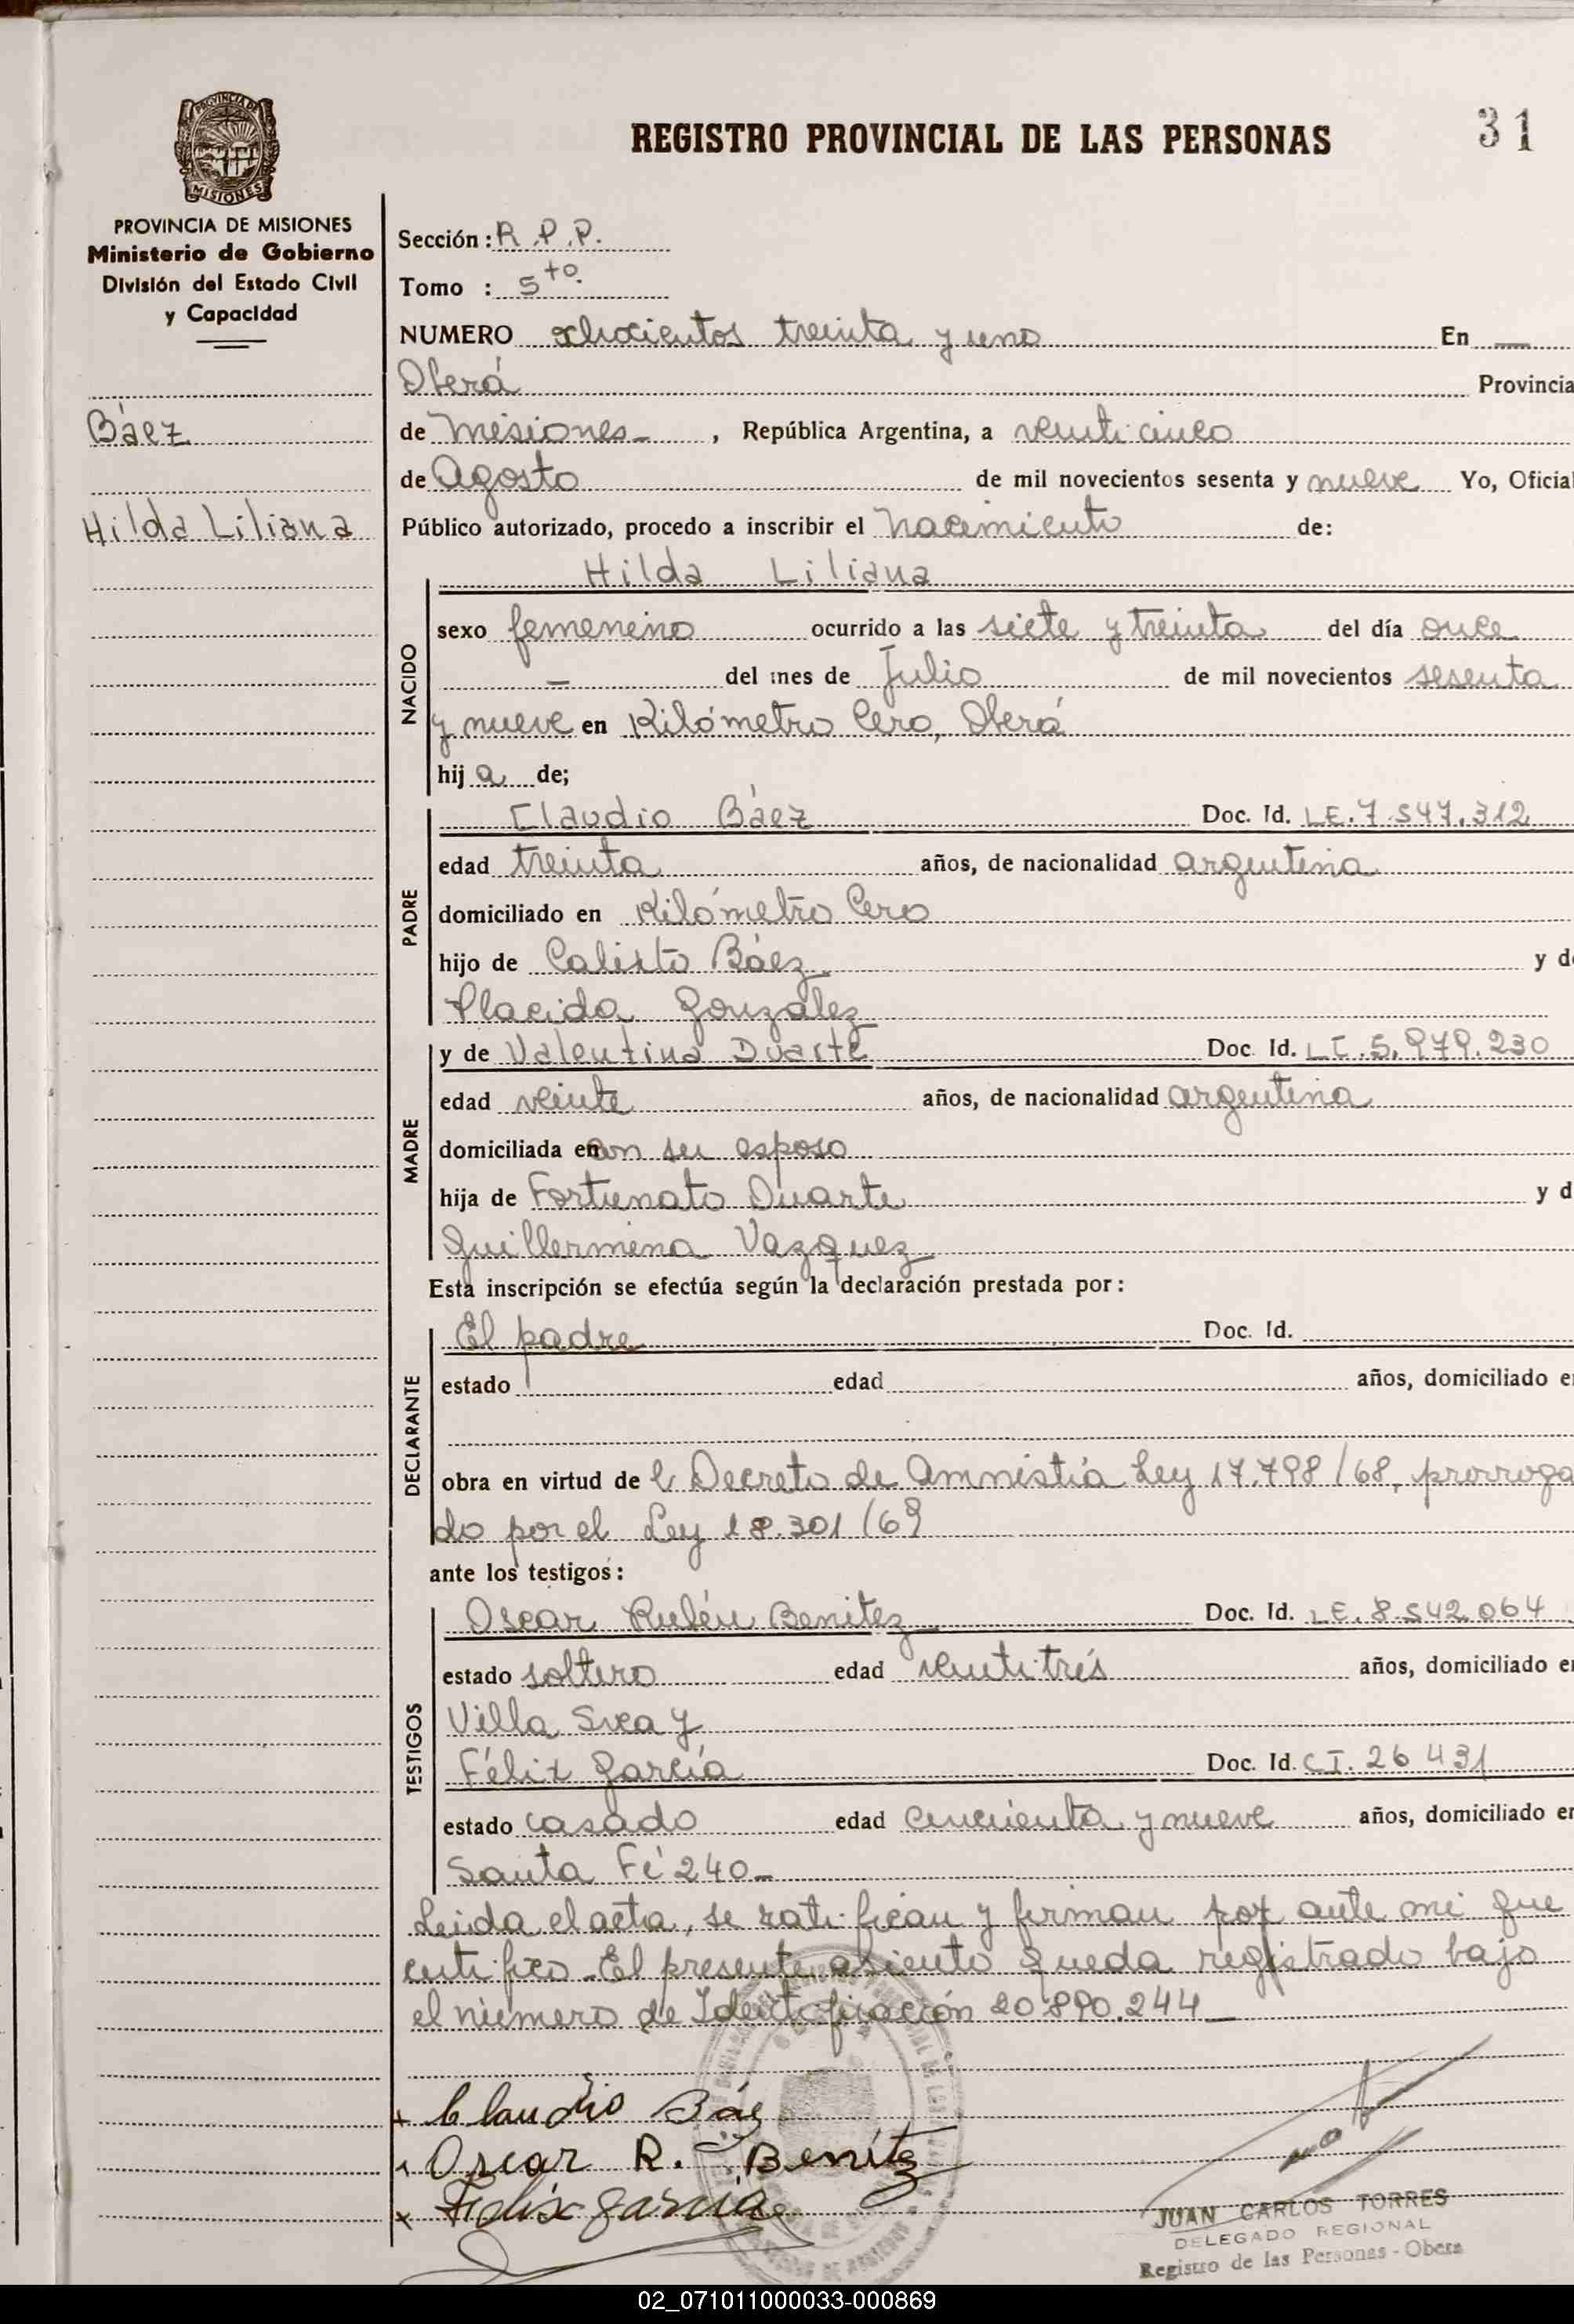 REGISTRO PROVINCIAL DE LAS PERSONAS
31
PROVINCIA DE
MISIONES
PROVINCIA DE MISIONES
Ministerio de Gobierno
División del Estado Civil
y Capacidad
Báez
Hilda Liliana
Sección: R.P.P.
Tomo : 5to.
NUMERO ochocientos treinta y uno En —
Oberá Provincia
de Misiones - , República Argentina, a veinticinco
de Agosto de mil novecientos sesenta y nueve Yo, Oficial
Público autorizado, procedo a inscribir el nacimiento de:
NACIDO
Hilda Liliana
sexo femenino ocurrido a las siete y treinta del día once
— del mes de Julio de mil novecientos sesenta
y nueve en Kilómetro Cero, Oberá
hija de;
PADRE
Claudio Báez Doc. Id. LE. 7.547.312
edad treinta años, de nacionalidad argentina
domiciliado en Kilómetro Cero
hijo de Calixto Báez y de
Placida González
MADRE
y de Valentina Duarte Doc. Id. LC. 5.979.230
edad veinte años, de nacionalidad argentina
domiciliada en con su esposo
hija de Fortunato Duarte y d
Guillermina Vazquez
Esta inscripción se efectúa según la declaración prestada por:
DECLARANTE
El padre Doc. Id.
estado edad años, domiciliado en
obra en virtud de l Decreto de Amnistía Ley 17.798/68, prorroga
do por el Ley 18.301/69
ante los testigos:
TESTIGOS
Oscar Rubén Benitez Doc. Id. LE. 8.542.064
estado soltero edad veintitrés años, domiciliado en
Villa Svea y
Félix García Doc. Id. CI. 26431
estado casado edad cincuenta y nueve años, domiciliado en
Santa Fé 240-
Leída el acta, se ratifican y firman por ante mi que
certifico. El presente asiento queda registrado bajo
el número de Identificación 20.890.244
x Claudio Báez
x Oscar R. Benítez
x Félix García
JUAN CARLOS TORRES
DELEGADO REGIONAL
Registro de las Personas - Obera
02_071011000033-000869